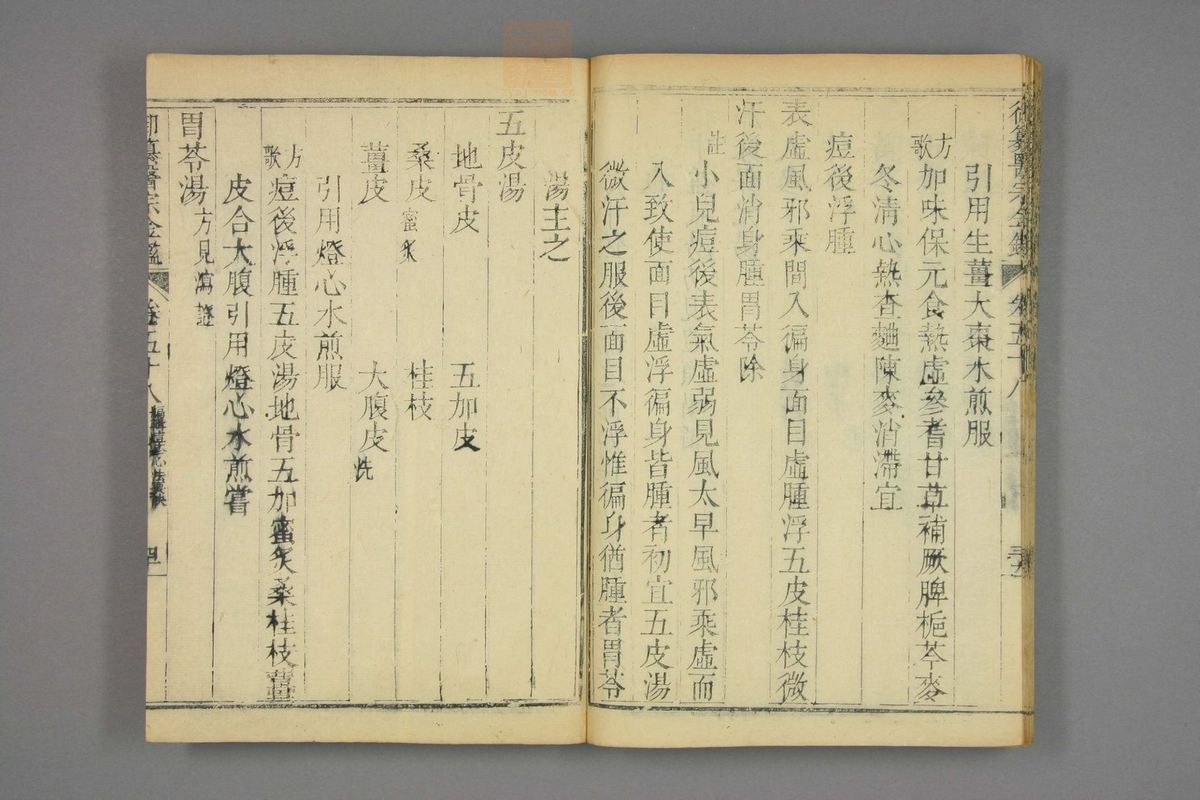 御纂醫宗金鑑 卷五十八
引用生薑大棗水煎服
方歌 加味保元食熱虛參耆甘草補厥脾梔芩麥
冬清心熱查麯陳麥消滯宜
痘後浮腫
表虛風邪乘間入徧身面目虛腫浮五皮桂枝微
汗後面消身腫胃苓除
註 小兒痘後表氣虛弱見風太早風邪乘虛而
入致使面目虛浮徧身皆腫者初宜五皮湯
微汗之服後面目不浮惟徧身猶腫者胃苓
湯主之
五皮湯
地骨皮 五加皮
桑皮蜜炙 桂枝
薑皮 大腹皮洗
引用燈心水煎服
方歌 痘後浮腫五皮湯地骨五加蜜炙桑桂枝薑
皮合大腹引用燈心水煎嘗
胃苓湯 方見瀉
御纂醫宗金鑑 卷五十八 心法要訣 四